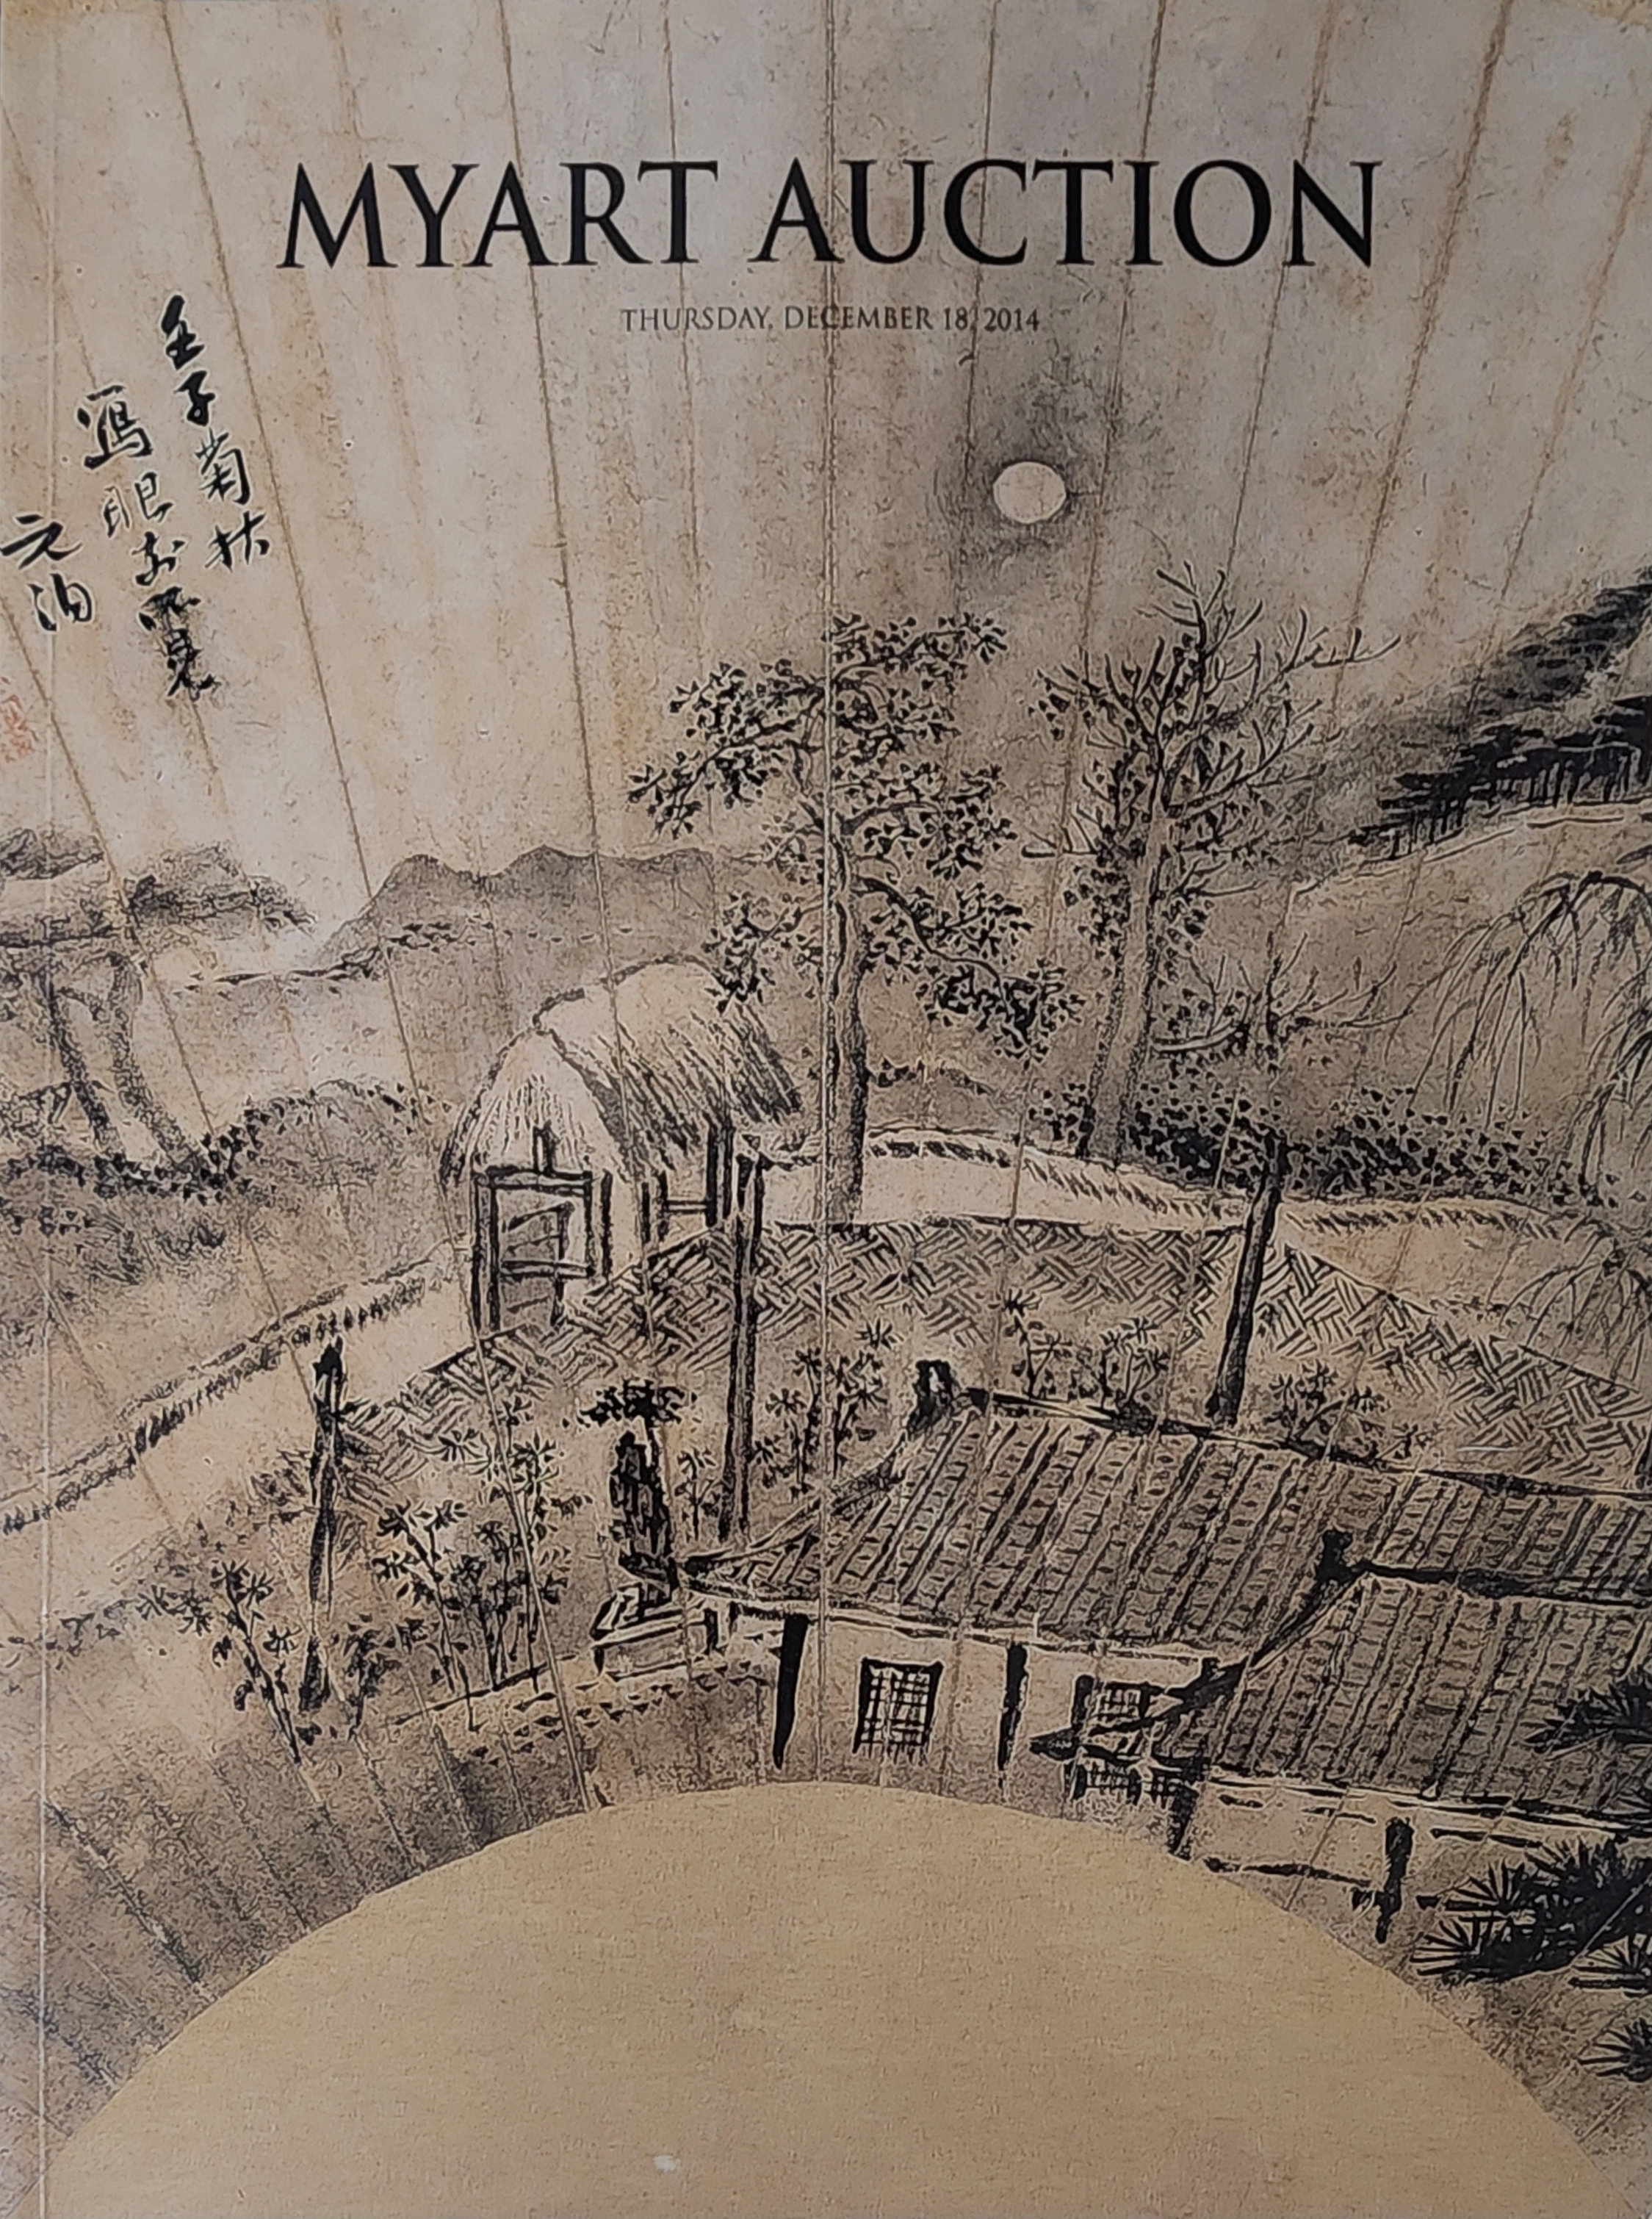 MYART AUCTION
THURSDAY, DECEMBER 18, 2014
壬子菊秋
寫眼前所見
元伯